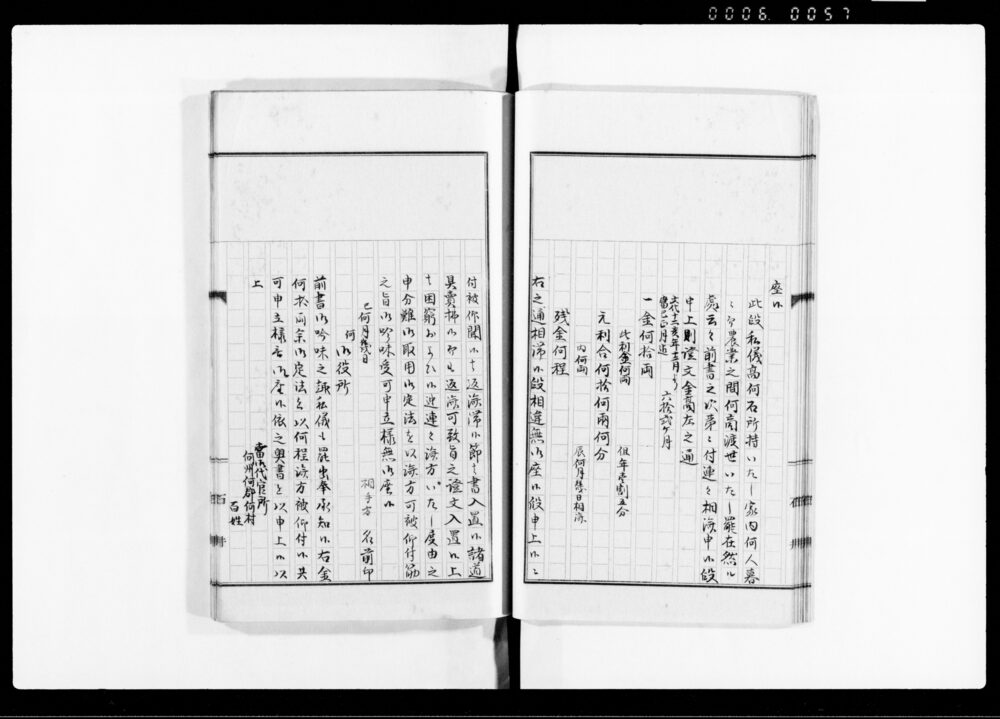 0006 0057
座候
此段私儀高何石所持いたし家内何人暮
ニ而農業之間何商渡世いたし罷在然ル
處云々前書之次第ニ付連々相済申候段
申上則證文金高左之通
文化十二亥年十二月より
當巳正月迄 六拾弐ヶ月
一金何拾両
此利金何両 但年壱割五分
元利合何拾何両何分
内何両 辰何月幾日相済
残金何程
右之通相滞候段相違無御座候段申上候ニ
付被仰聞候者返済滞候節者書入置候諸道
具賣拂候而も返済可致旨之證文入置候上
者困窮およひ候迚連々済方いたし度由之
申分難御取用御定法を以済方可被仰付筋
之旨御吟味受可申立様無御座候
巳何月幾日 相手方 名前印
何
御役所
前書御吟味之諏私儀も罷出奉承知候右金
何拾両余御定法を以何程済方被仰付候共
可申立様無御座候依之奥書を以申上候以
上
當御代官所
何州何郡何村
百姓